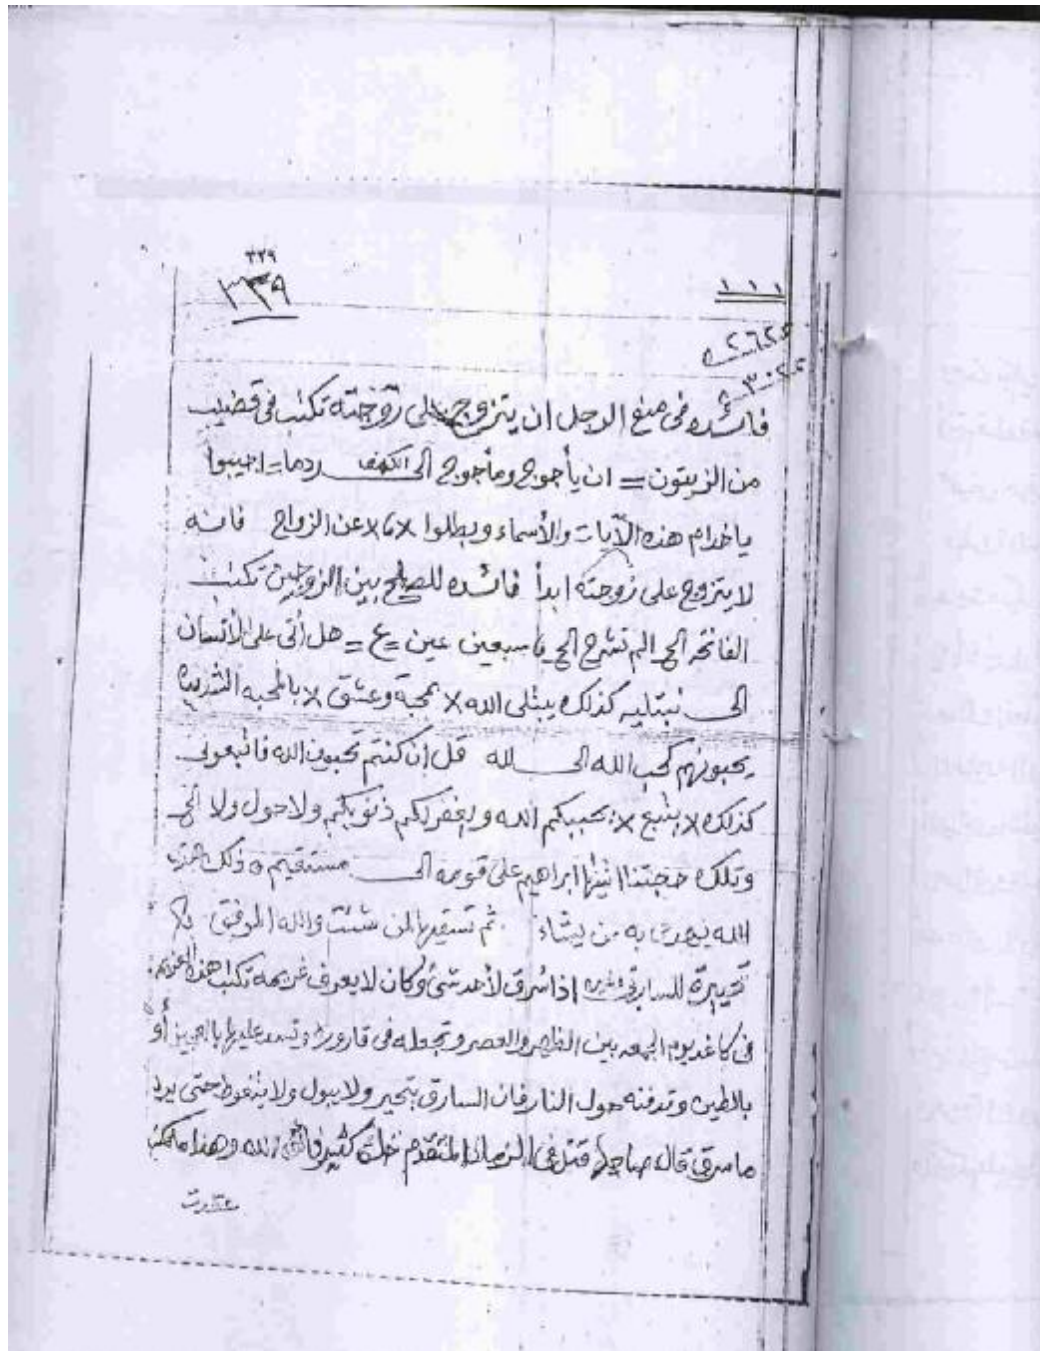 ٣٣٩
٣٣٩
١١١
٢٦٢٢
٣٠٢٢
فائده فى منع الرجل ان يتزوج على زوجته تكتب فى قضيب
من الزيتون = ان يأجوج ومأجوج الى الكهف ردما = اجيبوا
ياخدام هذه الآيات والأسماء وبطلوا عن الزواج فانه
لا يتزوج على زوجته ابدأ فائده للصلح بين الزوجين تكتب
الفاتحه الخ الم نشرح الخ سبعين عين = ع = هل أتى على الأنسان
الى نبتليه كذلك يبتلى الله بمحبة وعشق بالمحبه الشديده
يحبونهم كحب الله الى لله قل إن كنتم تحبون الله فاتبعونى
كذلك يتبع يحببكم الله ويغفرلكم ذنوبكم ولا حول ولا الخ
وتلك حجتنا اتينها ابراهيم على قومه الى مستقيم ذلك هدى
الله يهدى به من يشاء ثم تسقيها لمن شئت والله الموفق
تحييرة للسارق اذا سرق لأحد شئ وكان لا يعرف غريمه تكتب هذا العزيمه
فى كاغد يوم الجمعه بين الظهر والعصر وتجعله فى قارورة وتسد عليها بالعجين أو
بالطين وتدفنه حول النار فان السارق يتحير ولا يبول ولا يتغوط حتى يرد
ما سرق قال صاحبها قتل فى الزمان المتقدم خلق كثير وهذا ما تكتب